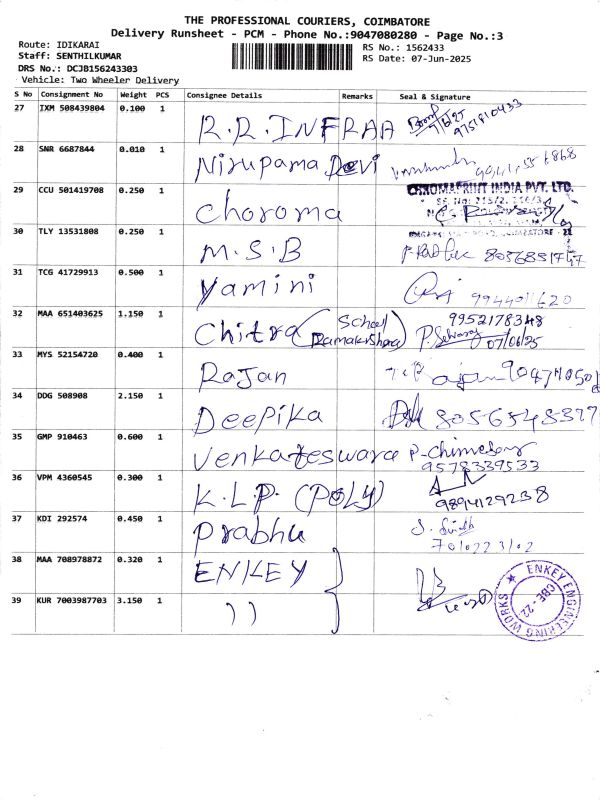 THE PROFESSIONAL COURIERS, COIMBATORE
Delivery Runsheet - PCM - Phone No.:9047080280 - Page No.:3
Route: IDIKARAI
RS No.: 1562433
Staff: SENTHILKUMAR
RS Date: 07-Jun-2025
DRS No.: DCJB156243303
Vehicle: Two Wheeler Delivery
S No Consignment No Weight PCS Consignee Details Remarks Seal & Signature
27 IXM 508439804 0.100 1 R.R.INFRAA 9751810433
28 SNR 6687844 0.010 1 Nirupama Devi
29 CCU 501419708 0.250 1 Choroma CHROMAPRINT INDIA PVT. LTD.
30 TLY 13531808 0.250 1 M.S.B
31 TCG 41729913 0.500 1 Yamini 9944011620
32 MAA 651403625 1.150 1 Chitra (School Ramakrishana) 9952178348
07/06/25
33 MYS 52154720 0.400 1 Rajan
34 DDG 508908 2.150 1 Deepika 8056548327
35 GMP 910463 0.600 1 Venkateswara
9578339533
36 VPM 4360545 0.300 1 K.L.P. (POLY) 9894129238
37 KDI 292574 0.450 1 Prabhu
38 MAA 708978872 0.320 1 ENKEY
39 KUR 7003987703 3.150 1 ))
ENKEY ENGINEERING WORKS
CBE - 22